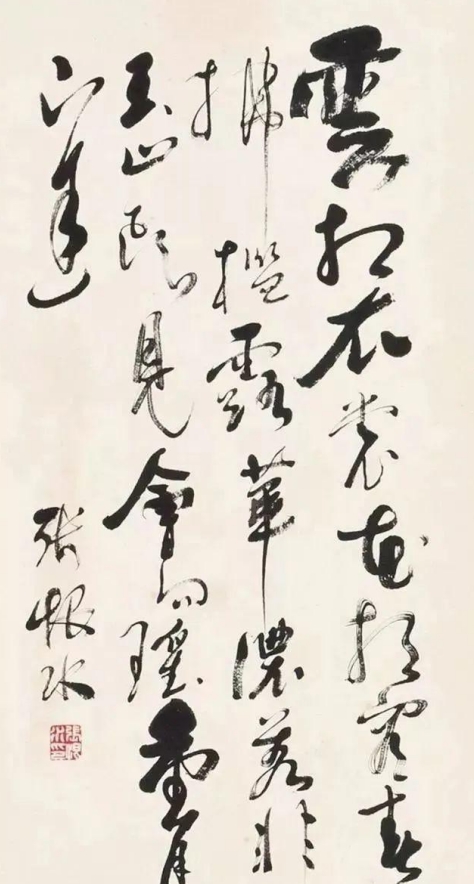 雲想衣裳花想容春
拂檻露華濃若非
玉山頭見會向瑤臺月
下逢
張恨水
張恨水印